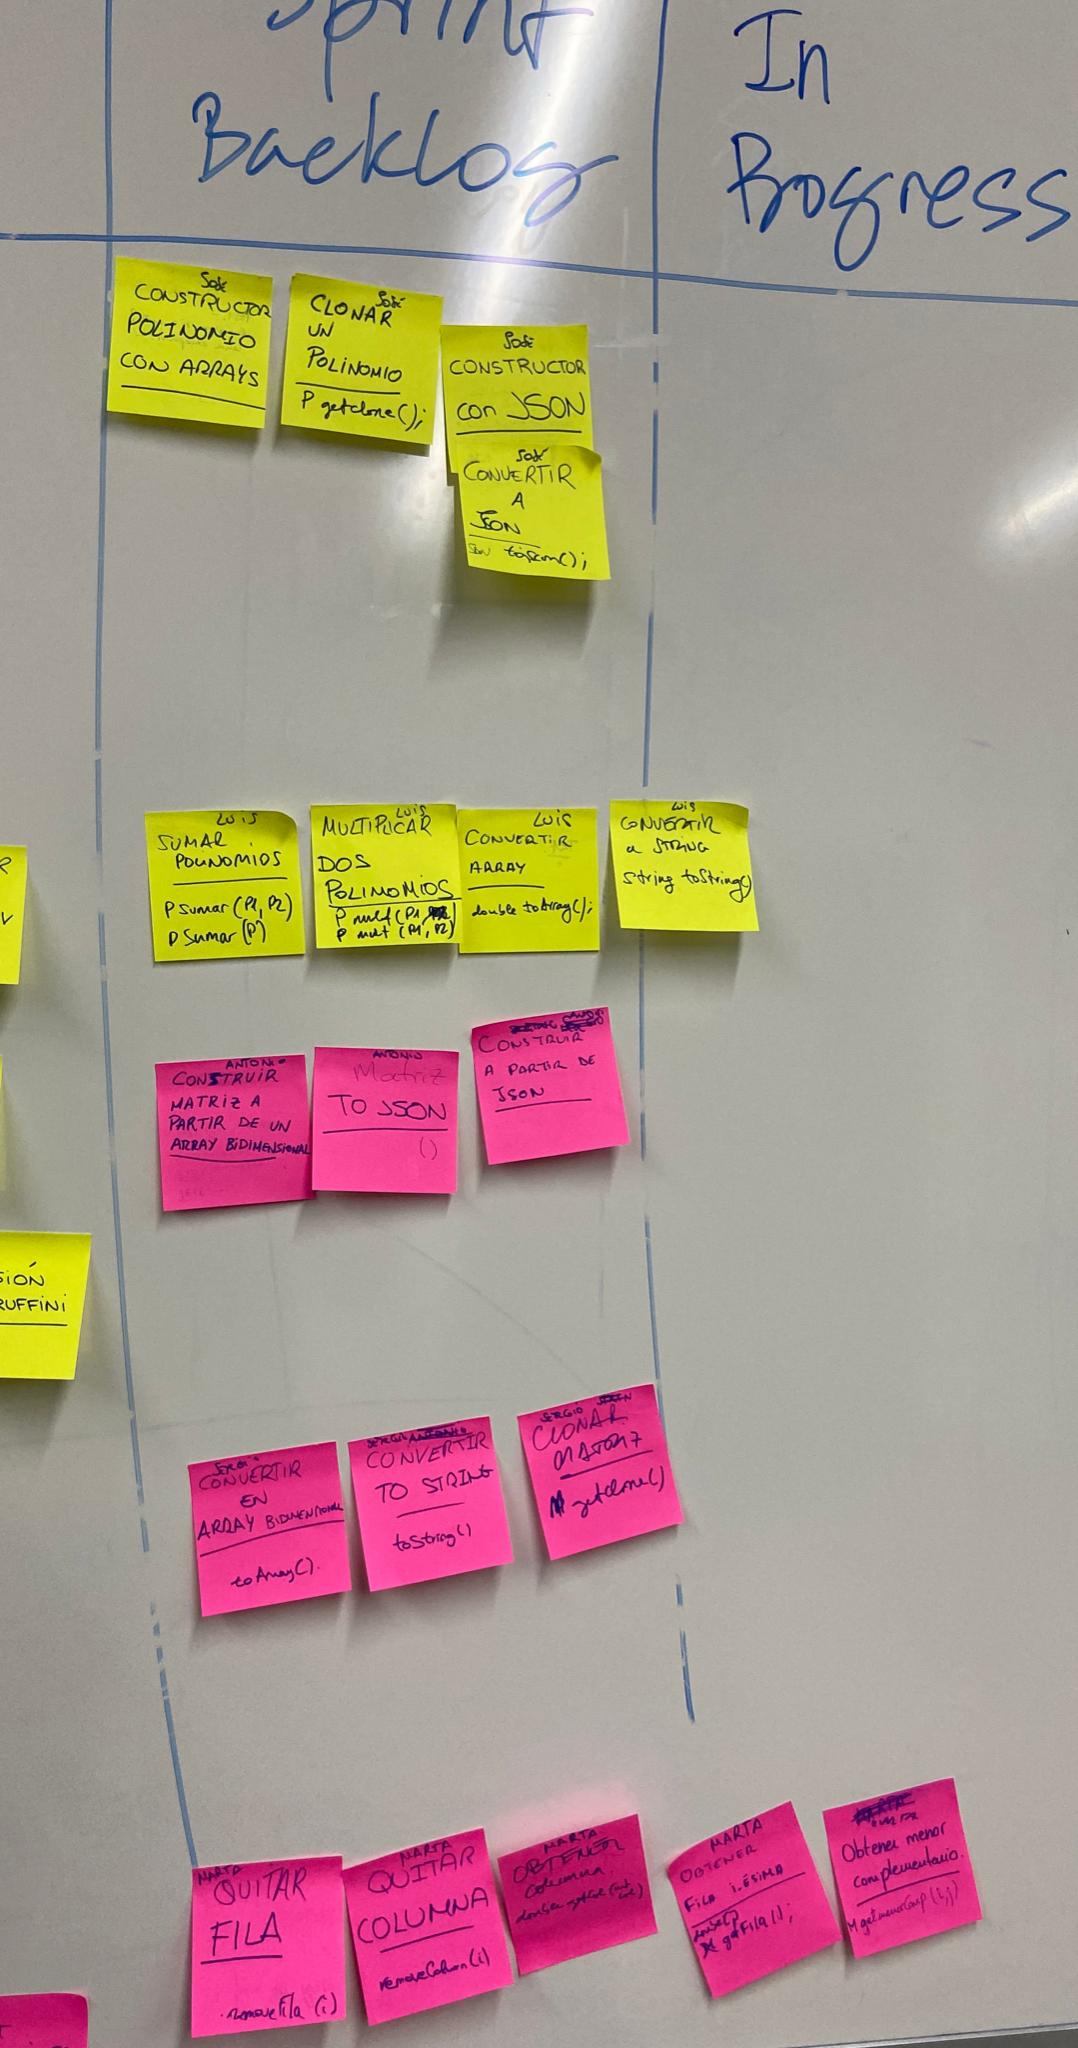 Sprint
Backlog
In
Progress
José
CONSTRUCTOR
POLINOMIO
CON ARRAYS
José
CLONAR
UN
POLINOMIO
P getclone();
José
CONSTRUCTOR
con JSON
José
CONVERTIR
A
JSON
Json toJson();
LUIS
SUMAR
POLINOMIOS
P Sumar (P1, P2)
P Sumar (P)
LUIS
MULTIPLICAR
DOS
POLINOMIOS
P mult (P1,
P mult (P1, P2)
LUIS
CONVERTIR
ARRAY
double toArray();
LUIS
CONVERTIR
a STRING
string toString()
ANTONIO
CONSTRUIR
MATRIZ A
PARTIR DE UN
ARRAY BIDIMENSIONAL
ANTONIO
Matriz
TO JSON
()
CONSTRUIR
A PARTIR DE
JSON
SIÓN
RUFFINI
SERGIO
CONVERTIR
EN
ARRAY BIDIMENSIONAL
toArray().
SERGIO ANTONIO
CONVERTIR
TO STRING
toString()
SERGIO
CLONAR
MATRIZ
M getclone()
MARTA
QUITAR
FILA
removeFila (i)
MARTA
QUITAR
COLUMNA
removeColumn(i)
MARTA
OBTENER
columna
MARTA
OBTENER
FILA i-ÉSIMA
getFila();
Obtener menor
complementario.
M getmenorComp (i,j)